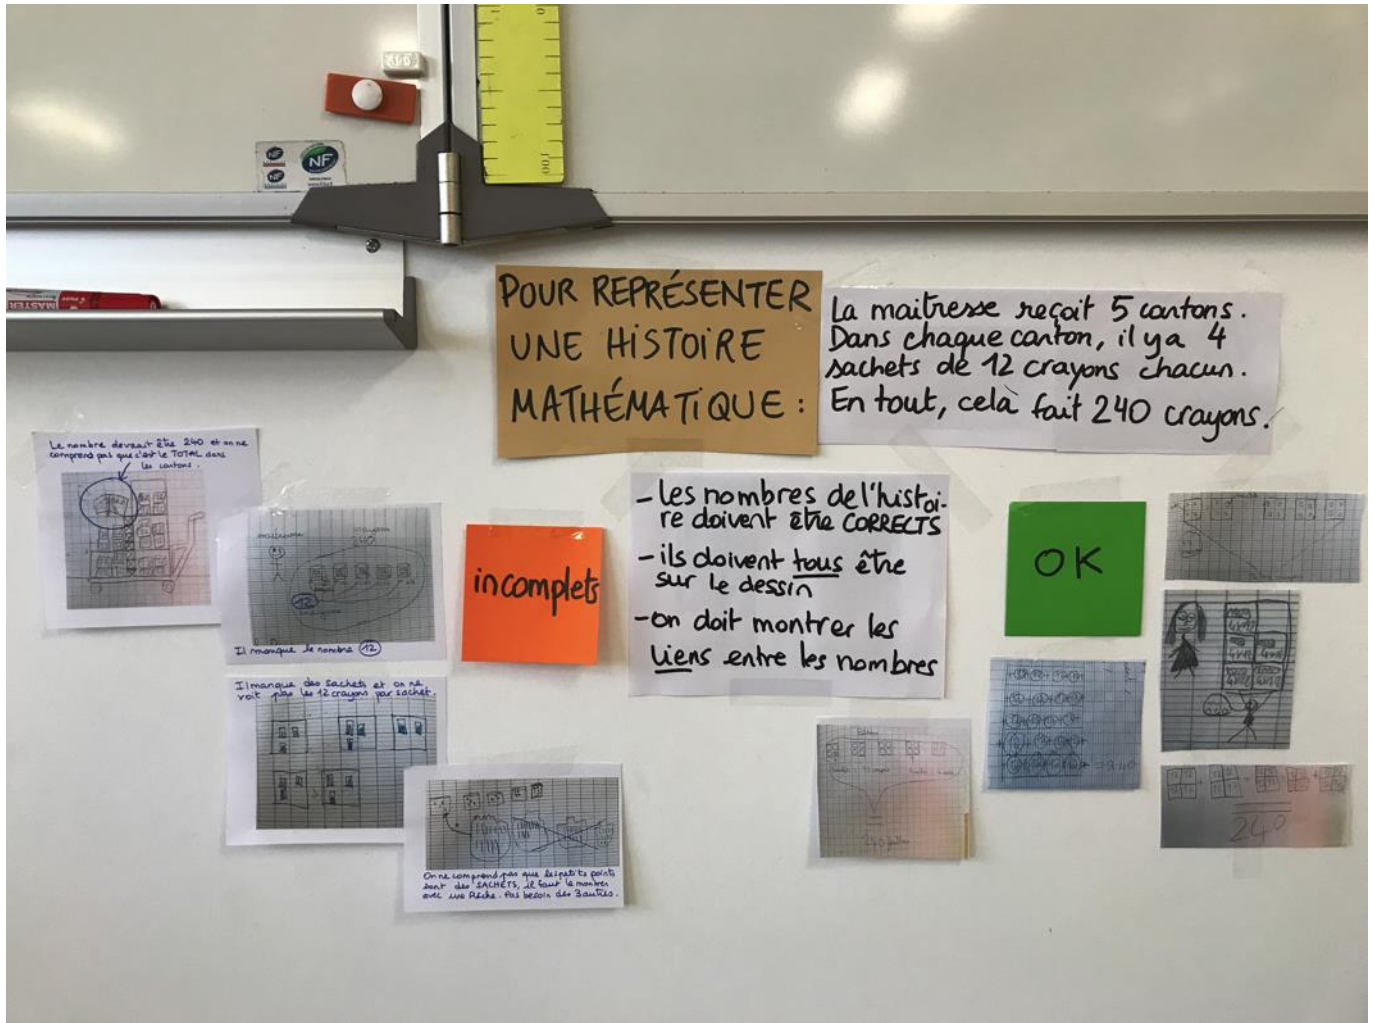 100
NF
NF
NF
100
MASTER
POUR REPRÉSENTER
UNE HISTOIRE
MATHÉMATIQUE :
La maitresse reçoit 5 cartons.
Dans chaque carton, il y a 4
sachets de 12 crayons chacun.
En tout, celà fait 240 crayons.
Le nombre devrait être 240 et on ne
comprend pas que c'est le TOTAL dans
les cartons.
maitresse
crayons
240
12
Il manque le nombre 12
Il manque des sachets et on ne
voit pas les 12 crayons par sachet.
On ne comprend pas que les petits points
sont des SACHETS, il faut le montrer
avec une flèche. Pas besoin des 3 autres.
incomplets
- les nombres de l'histoi-
re doivent être CORRECTS
- ils doivent tous être
sur le dessin
- on doit montrer les
liens entre les nombres
OK
= 240
240
240